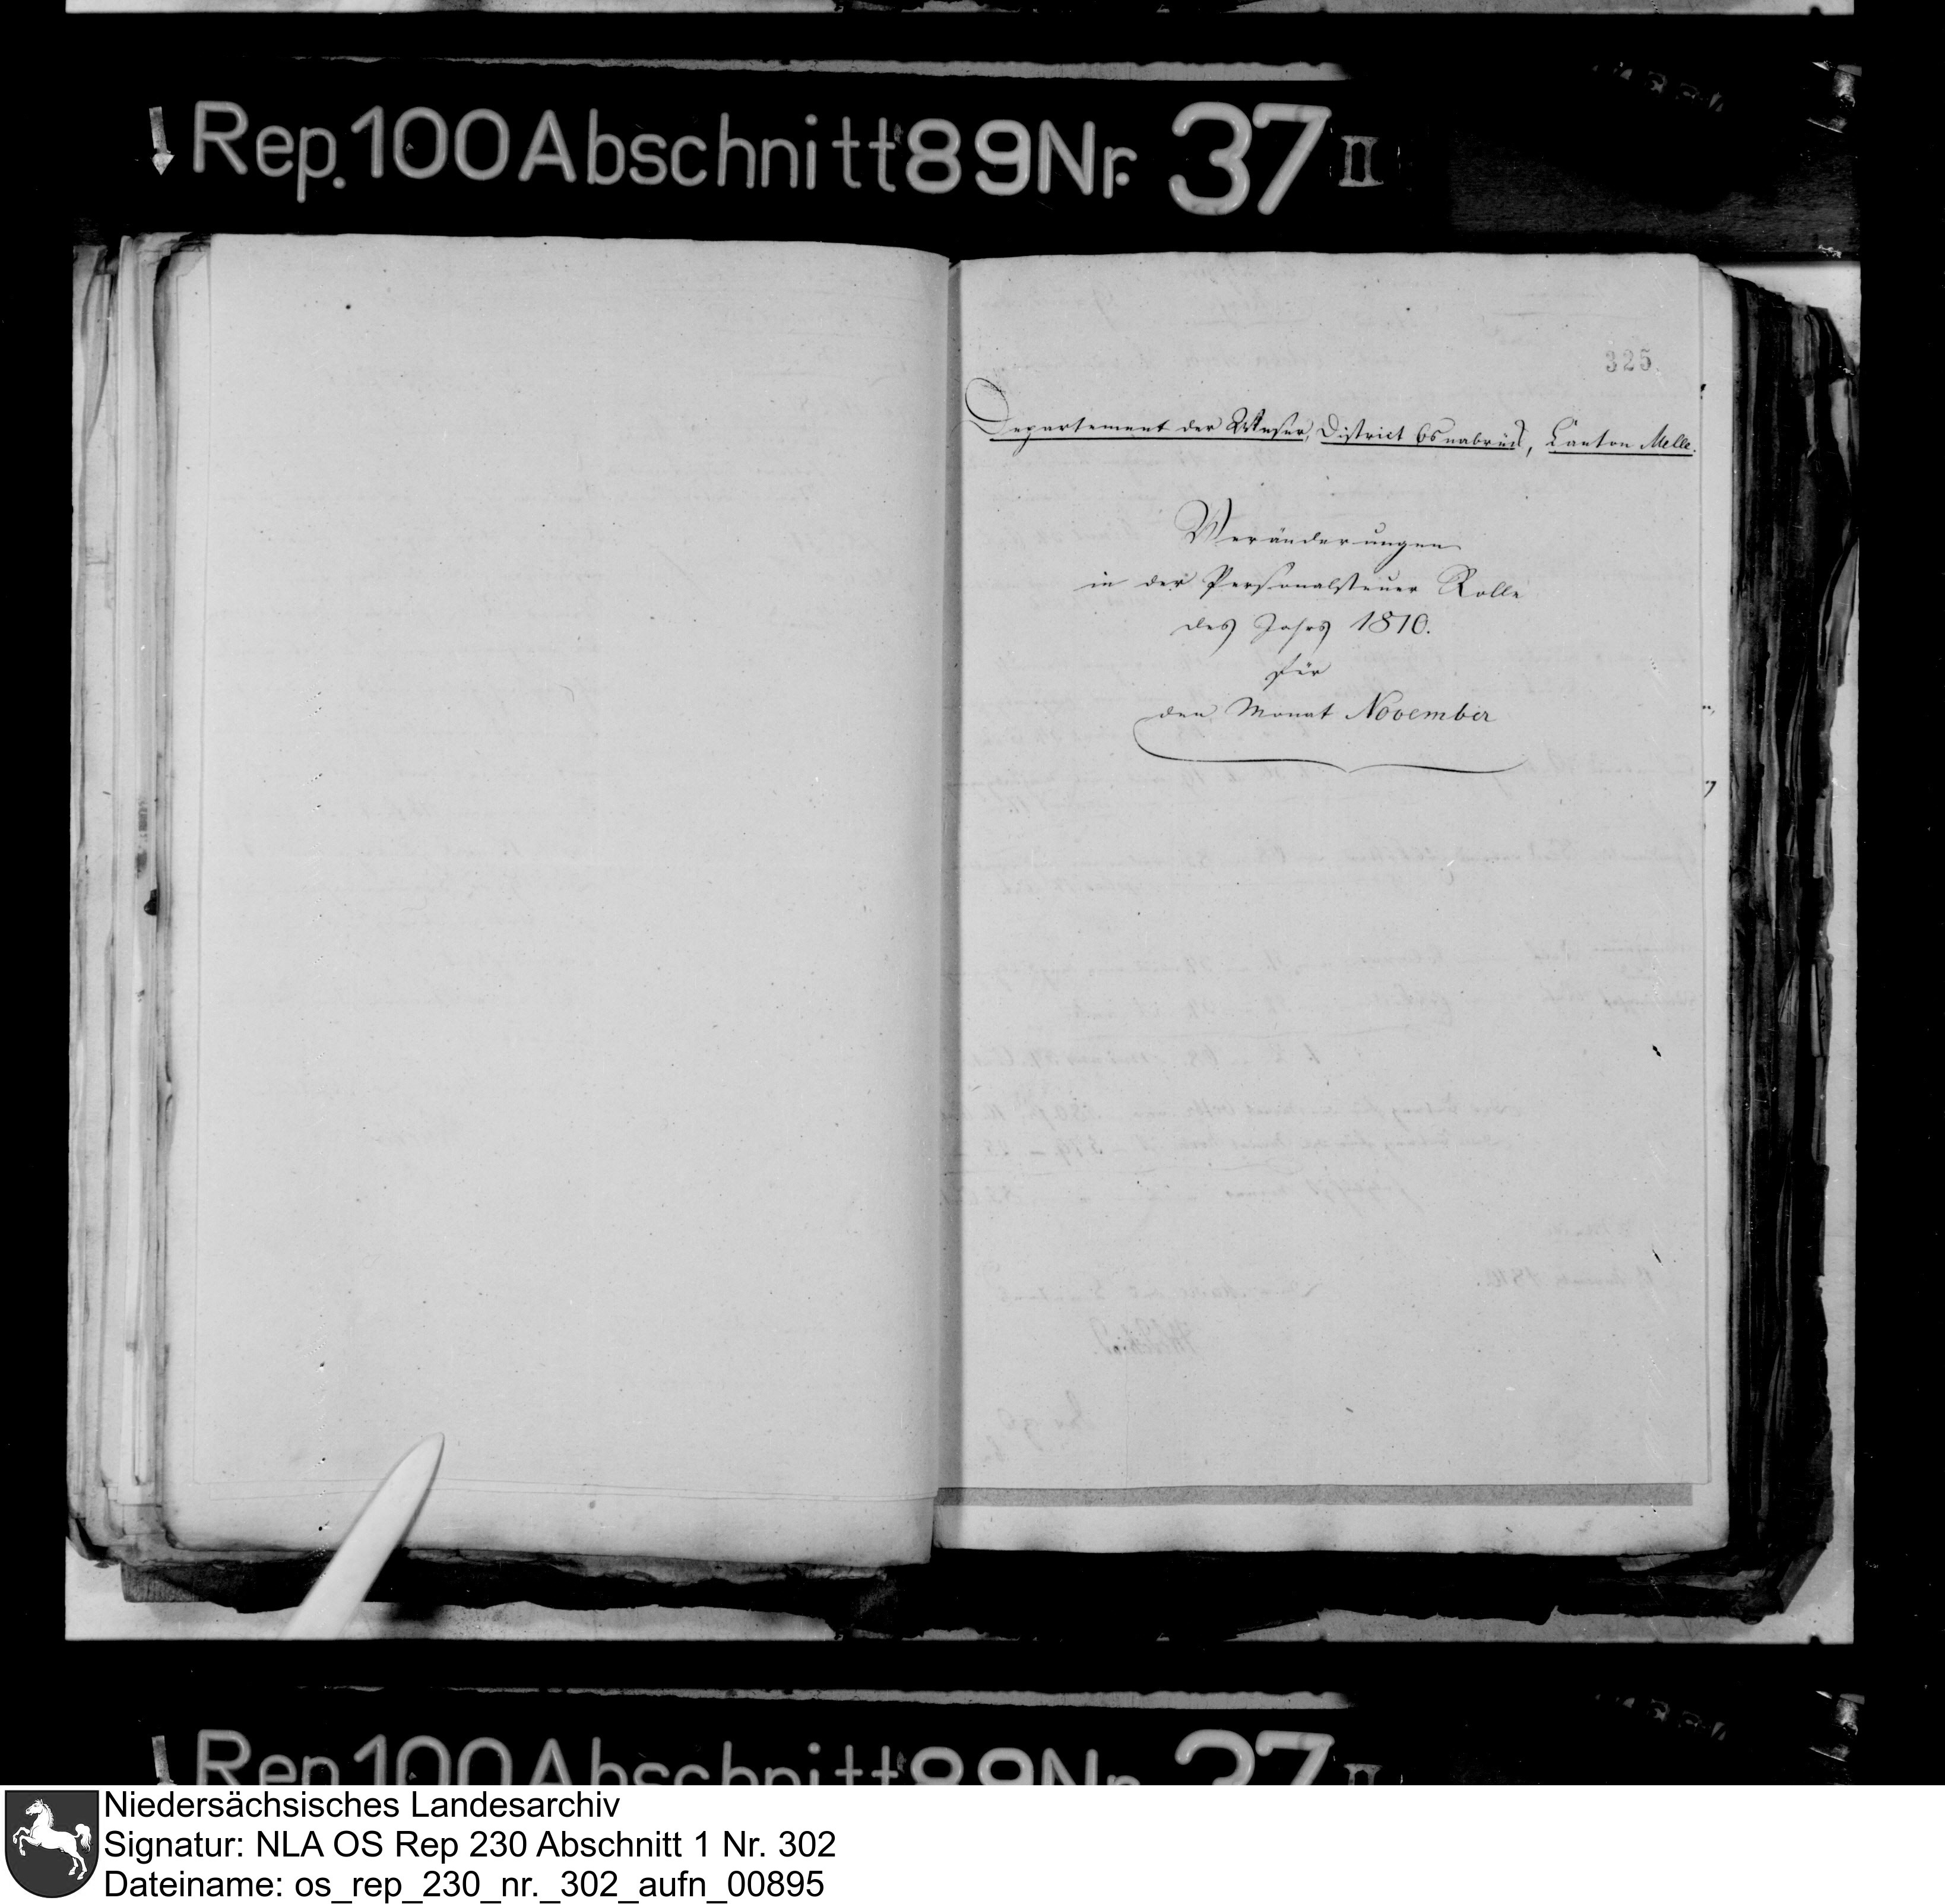 Rep. 100 Abschnitt 89 Nr. 37 II
325
Departement der Weser, District Osnabrück, Canton Melle.
Veränderungen
in der Personalsteuer Rolle
des Jahrs 1810.
für
den Monat November
Rep. 100 Abschnitt 89 Nr. 37 II
Niedersächsisches Landesarchiv
Signatur: NLA OS Rep 230 Abschnitt 1 Nr. 302
Dateiname: os_rep_230_nr._302_aufn_00895